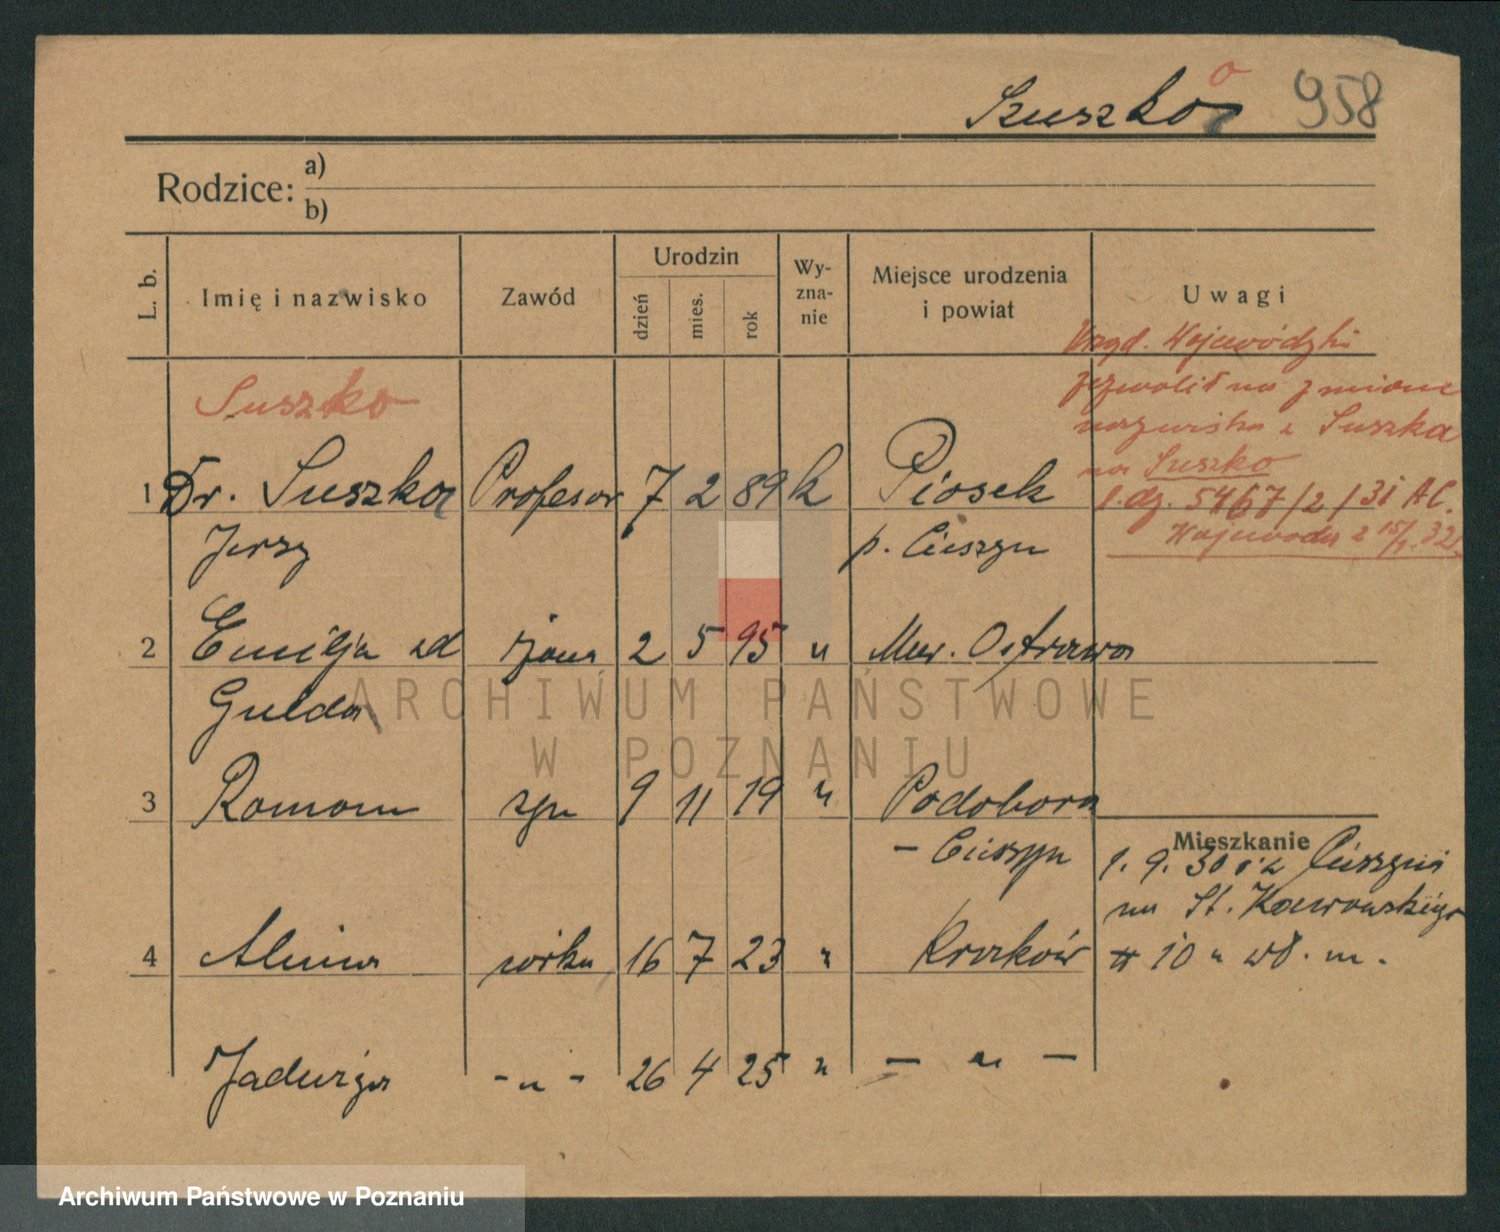 Szuszko 958
Rodzice: a)
b)
L. b. Imię i nazwisko Zawód Urodzin dzień mies. rok Wy-zna-nie Miejsce urodzenia i powiat Uwagi
Urząd. Wojewódzki
zezwolił na zmianę
nazwiska z Suszka
na Suszko
l.dz. 5467/2/31 A.C.
Wojewoda z 15/1. 32.
Suszko
1 Dr. Suszka Profesor 7 2 89 k Piosek
Jerzy p. Cieszyn
2 Emilja zd żona 2 5 95 " Mor. Ostrawa
Gulda
3 Roman syn 9 11 19 " Podobora
– Cieszyn
Mieszkanie
1. 9. 30 z Cieszyna
na St.
# 10 u wł. m.
4 Alina córka 16 7 23 " Kraków
Jadwiga - " - 26 4 25 " — " —
ARCHIWUM PAŃSTWOWE
W POZNANIU
Archiwum Państwowe w Poznaniu